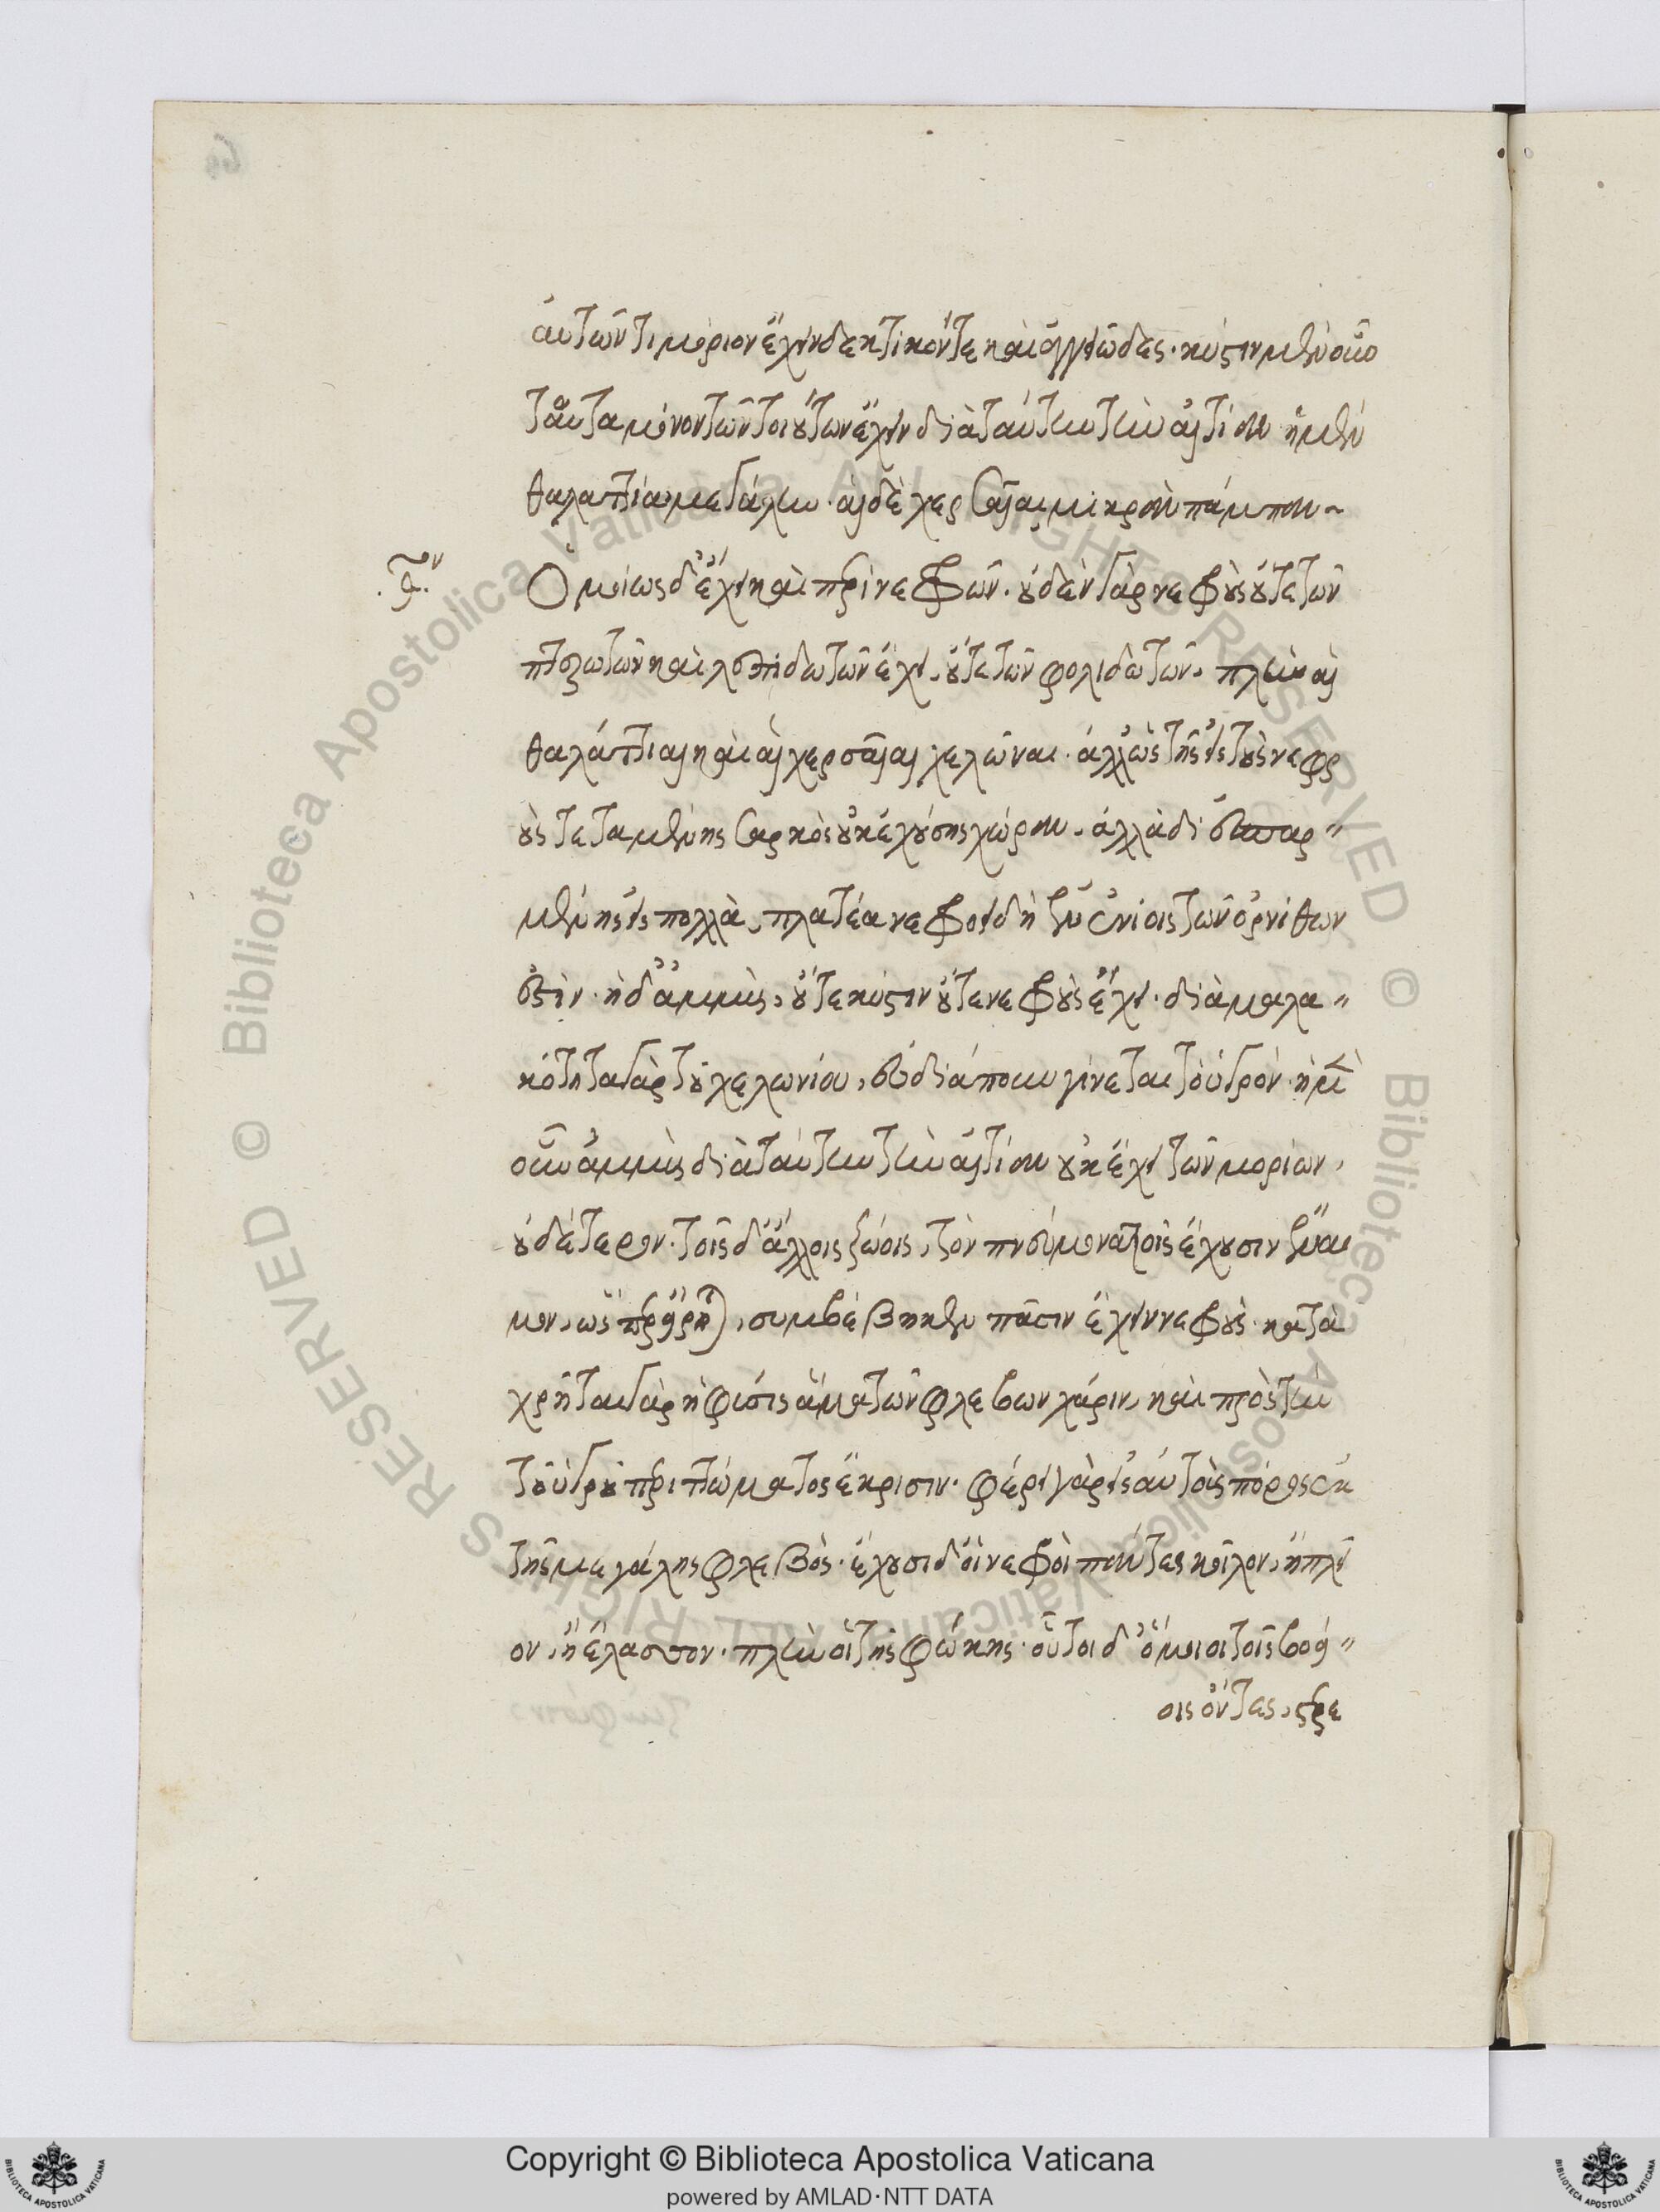 αὐτῶν τι μόριον ἔχειν δεκτικόν τε καὶ ἀγγειῶδες. κύστιν μὲν οὖν
ταῦτα μόνον τῶν τοιούτων ἔχειν διὰ ταύτην τὴν αἰτίαν ἡ μὲν
θαλαττία μεγάλην. αἱ δὲ χερσαῖαι μικρὰν πάμπαν~
Ὁμοίως δ' ἔχει καὶ περὶ νεφρῶν. οὐδὲν γὰρ νεφροὺς οὔτε τῶν
πτερωτῶν καὶ λεπιδωτῶν ἔχει, οὔτε τῶν φολιδωτῶν, πλὴν αἱ
θαλάττιαι καὶ αἱ χερσαῖαι χελῶναι. ἀλλ' ὡς τῆς εἰς τοὺς νεφρ
οὺς τεταμένης σαρκὸς οὐκ ἐχούσης χώραν. ἀλλὰ διεσπαρ"
μένης εἰς πολλὰ, πλατέα νεφροειδῆ ἐν ἐνίοις τῶν ὀρνίθων
ἐστίν. ἡ δ' ἀμμὺς, οὔτε κύστιν οὔτε νεφροὺς ἔχει. διὰ μαλα"
κότητα γὰρ τοῦ χελωνίου, εὐδιάπνουν γίνεται τὸ ὑγρόν. ἡ μὲν
οὖν ἀμμὺς διὰ ταύτην τὴν αἰτίαν οὐκ ἔχει τῶν μορίων,
οὐδέτερον. τοῖς δ' ἄλλοις ζώοις, τὸν πνεύμονα τοῖς ἔχουσιν ἔναι
μον, ὥσπερ εἴρηται, συμβέβηκεν πᾶσιν ἔχειν νεφρούς. κατα
χρῆται γὰρ ἡ φύσις ἅμα τῶν φλεβῶν χάριν, καὶ πρὸς τὴν
τοῦ ὑγροῦ περιττώματος ἔκκρισιν. φέρει γὰρ εἰς αὐτοὺς πόρος ἐκ
τῆς μεγάλης φλεβός. ἔχουσι δ' οἱ νεφροὶ πάντες κοῖλον, ἢ πλεῖ
ον, ἢ ἔλασσον. πλὴν οἱ τῆς φώκης. οὗτοι δ' ὅμοιοι τοῖς βοεί"
οις ὄντες, στερε